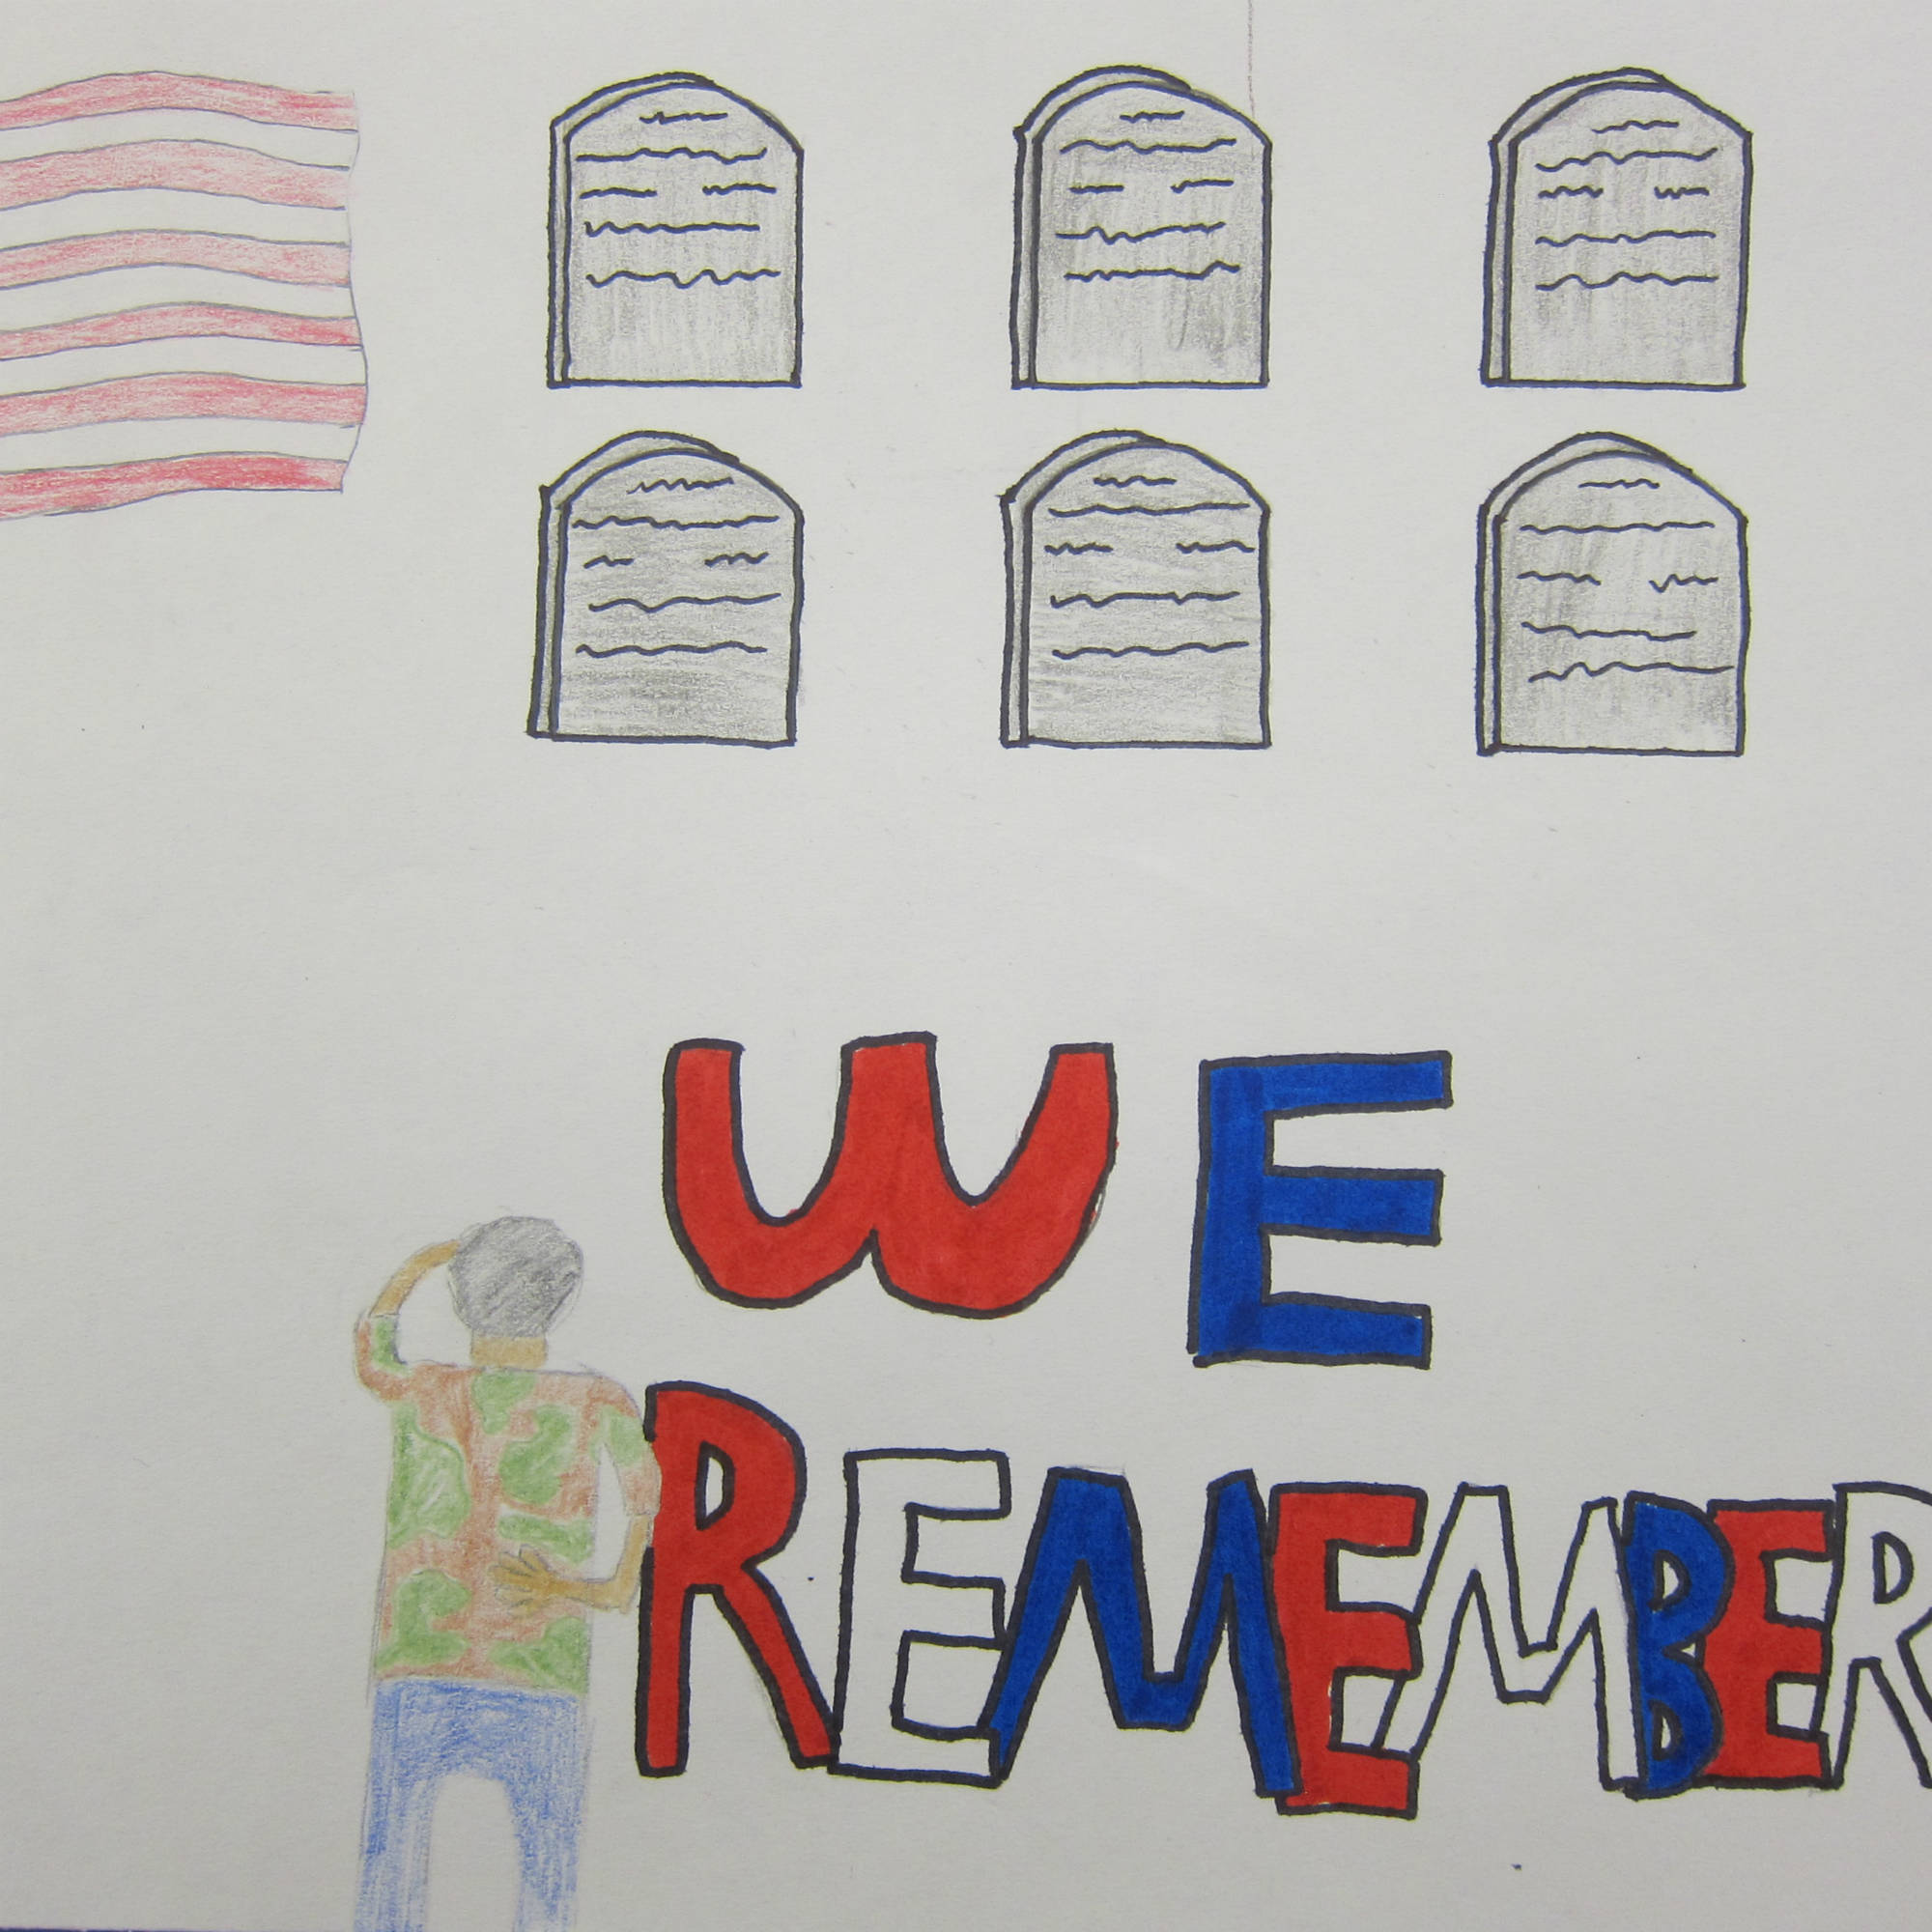 WE
REMEMBER